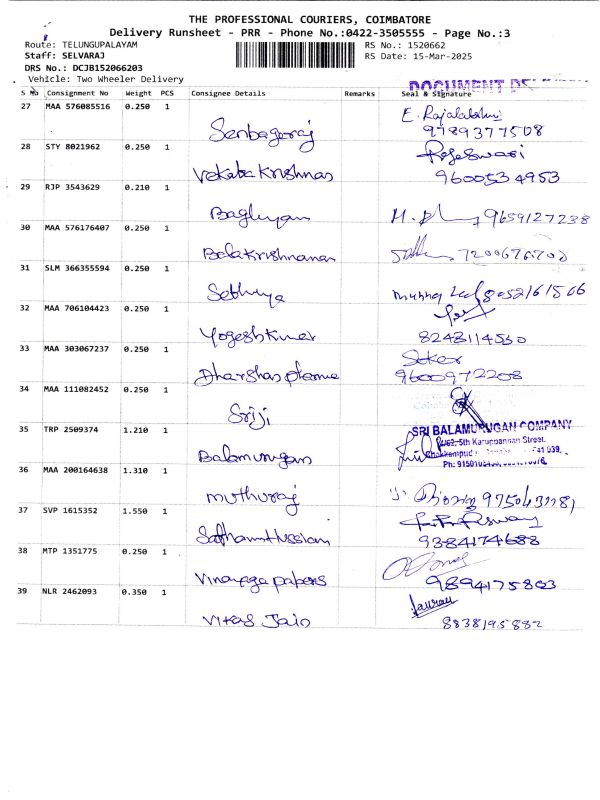 THE PROFESSIONAL COURIERS, COIMBATORE
Delivery Runsheet - PRR - Phone No.:0422-3505555 - Page No.:3
Route: TELUNGUPALAYAM RS No.: 1520662
Staff: SELVARAJ RS Date: 15-Mar-2025
DRS No.: DCJB152066203
Vehicle: Two Wheeler Delivery
DOCUMENT
S No Consignment No Weight PCS Consignee Details Remarks Seal & Signature
27 MAA 576085516 0.250 1 E. Rajalakshmi
Senbagaraj 9789377508
28 STY 8021962 0.250 1 Rajeswari
Vekata Krishnas 9600534953
29 RJP 3543629 0.210 1
Bagluyan 9659127238
30 MAA 576176407 0.250 1
Bala Krishnanan 7200676700
31 SLM 366355594 0.250 1
Sethuya 8052161566
32 MAA 706104423 0.250 1
Yogeshkumar 8248114530
33 MAA 303067237 0.250 1 Sekar
Dharshas 9600972208
34 MAA 111082452 0.250 1
Sriji
35 TRP 2509374 1.210 1 SRI BALAMURUGAN COMPANY
5th Karuppannan Street,
Balamurugan Ph:
36 MAA 200164638 1.310 1
muthuraj 9750431781
37 SVP 1615352 1.550 1
9384174688
38 MTP 1351775 0.250 1
Vinayaga papers 9894175803
39 NLR 2462093 0.350 1
Vikas Jain 8838195882